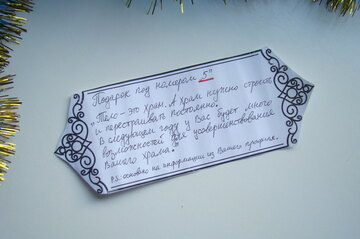 Подарок под номером „5"
„Тело – это храм. А храм нужно строить
и перестраивать постоянно.
В следующем году у Вас будет много
возможностей для усовершенствования
Вашего храма."
P.S. основано на информации из Вашего профиля.